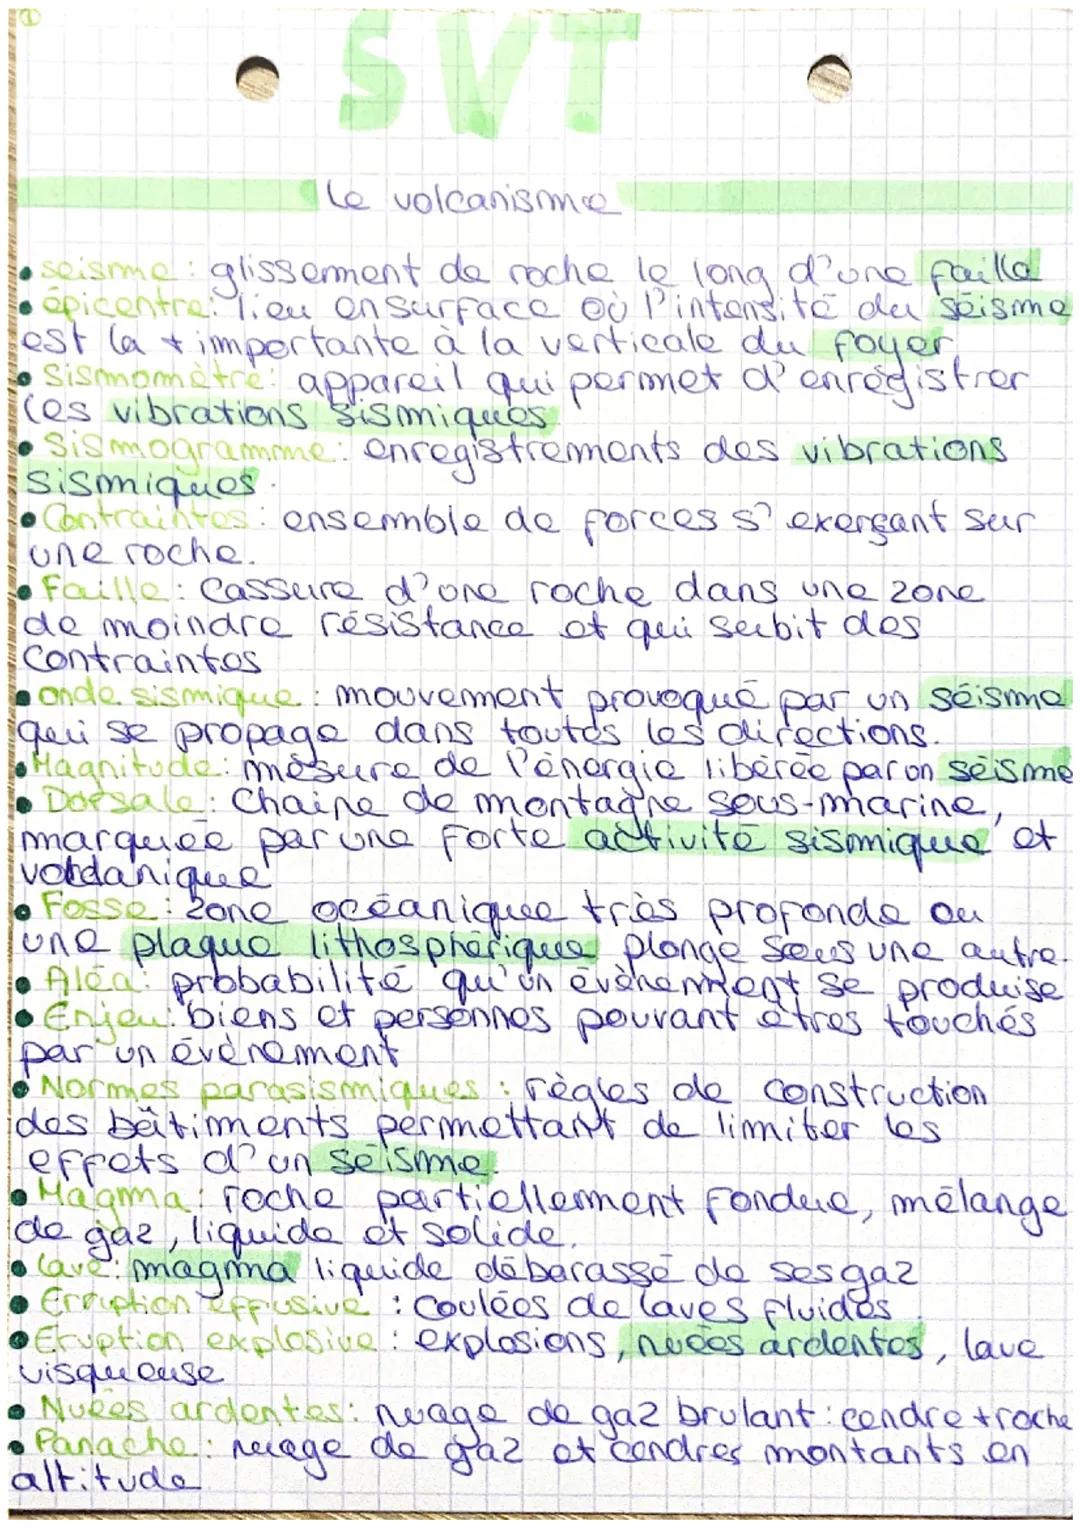 ①
SVT
Le volcanisme
• seisme : glissement de roche le long d'une faille
• épicentre : lieu en surface où l'intensité du séisme
est la + importante à la verticale du foyer.
• Sismomètre : appareil qui permet d'enrégistrer
les vibrations sismiques.
• Sismogramme : enregistrements des vibrations
sismiques.
• Contraintes : ensemble de forces s'exerçant sur
une roche.
• Faille : Cassure d'une roche dans une zone
de moindre résistance et qui subit des
contraintes
• onde sismique : mouvement provoqué par un séisme
qui se propage dans toutes les directions.
• Magnitude : mésure de l'énergie libérée par un séisme
• Dorsale : Chaine de montagne sous-marine,
marquée par une forte activité sismique et
volcanique
• Fosse : zone océanique très profonde ou
une plaque lithosphérique plonge sous une autre.
• Aléa : probabilité qu'un évènement se produise
• Enjeu : biens et personnes pouvant êtres touchés
par un évènement
• Normes parasismiques : règles de construction
des bâtiments permettant de limiter les
effets d'un séisme.
• Magma : roche partiellement fondue, mélange
de gaz, liquide et solide.
• Lave : magma liquide débarassé de ses gaz
• Erruption effusive : Coulées de laves fluides
• Eruption explosive : explosions, nuées ardentes, lave
visqueuse
• Nuées ardentes : nuage de gaz brulant : cendre + roche
• Panache : nuage de gaz et cendres montants en
altitude